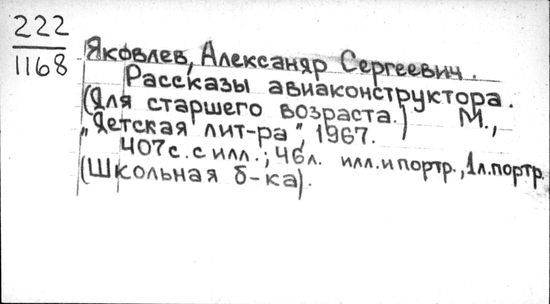 222
1168
Яковлев, Александр Сергеевич.
Рассказы авиаконструктора.
(Для старшего возраста.) М.,
„Детская лит-ра", 1967.
407с. с илл.; 46л. илл. и портр., 1л. портр.
(Школьная б-ка).